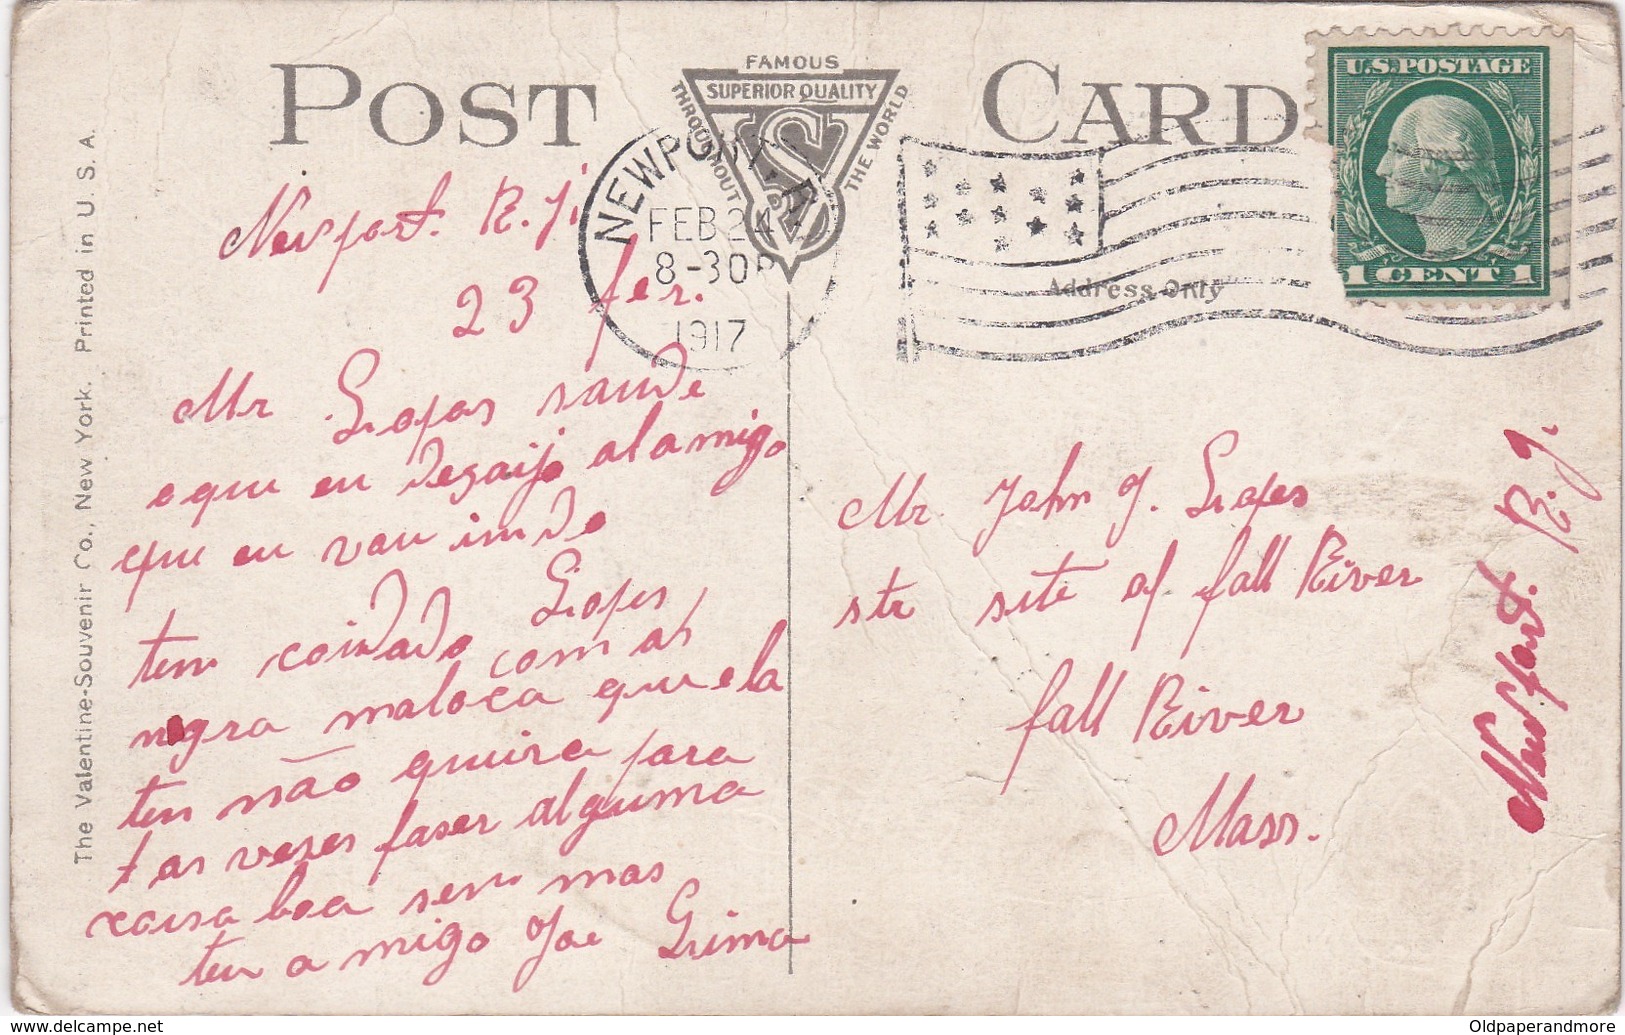 POST CARD
FAMOUS
SUPERIOR QUALITY
THROUGHOUT THE WORLD
U.S. POSTAGE
1 CENT 1
NEWPORT
FEB 24
8-30P
1917
Address Only
The Valentine-Souvenir Co., New York. Printed in U. S. A.
Newport. R. J.
23 fer.
Mr Lopas saude
o que eu desaijo al amigo
que eu vau indo
ten coidado Lopes
negra maloca com as
ten não quira para
tas veses faser alguma
coisa boa sem mas
ten amigo Joe Lima
Mr. John J. Lopes
str site of fall River
fall River
Mass.
Newport. R. J.
Oldpaperandmore